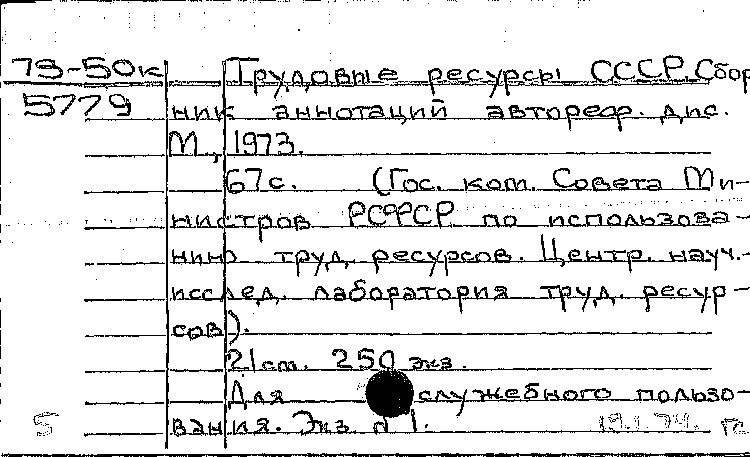 73-50к Трудовые ресурсы СССР. Сбор
5779 ник аннотаций автореф. дис.
М., 1973.
67с. (Гос. ком. Совета Ми-
нистров РСФСР по использова-
нию труд. ресурсов. Центр. науч.-
исслед. лаборатория труд. ресур-
сов).
21см. 250 экз.
Для служебного пользо-
5 вания. Экз. №1. 19.1.74.